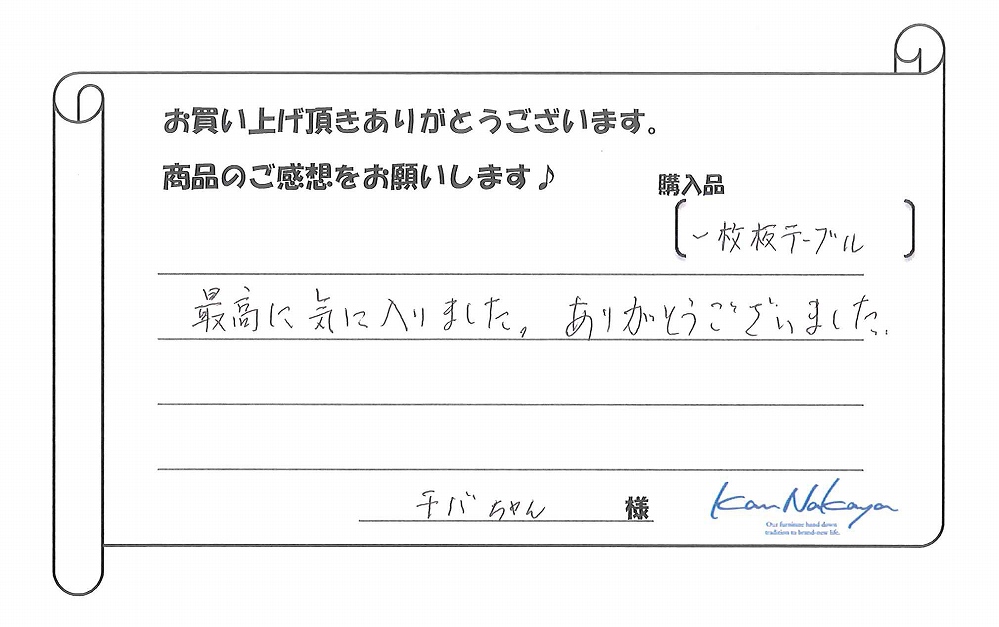 お買い上げ頂きありがとうございます。
商品のご感想をお願いします♪
購入品
一枚板テーブル
最高に気に入りました。ありがとうございました。
千バちゃん 様
Kan Nakaya
Our furniture hand down
tradition to brand-new life.